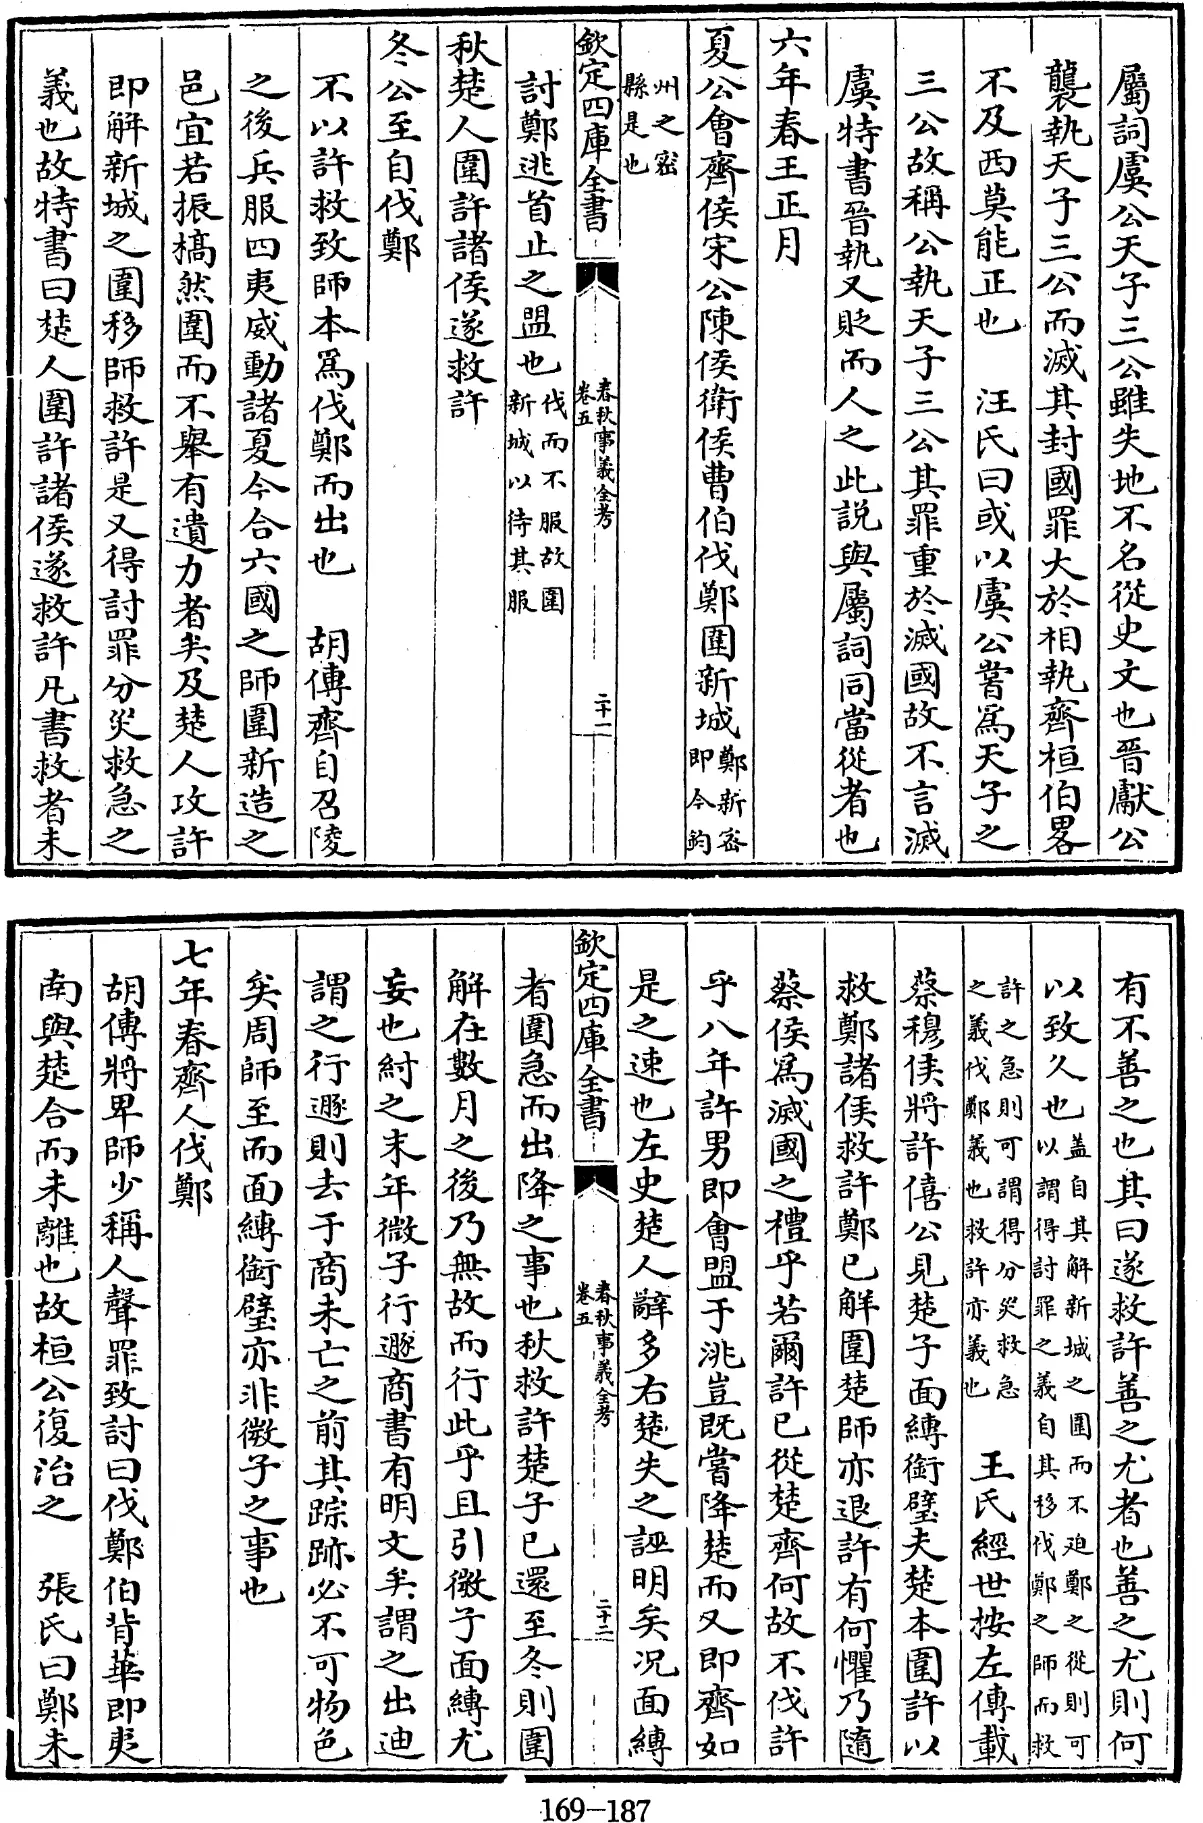 屬詞虞公天子三公雖失地不名從史文也晉獻公
襲執天子三公而滅其封國罪大於相執齊桓伯畧
不及西莫能正也　汪氏曰或以虞公嘗爲天子之
三公故稱公執天子三公其罪重於滅國故不言滅
虞特書晉執又貶而人之此説與屬詞同當從者也
六年春王正月
夏公會齊侯宋公陳侯衛侯曹伯伐鄭圍新城鄭新密
即今鈞
州之密
縣是也
欽定四庫全書
春秋事義全考
卷五
二十一
討鄭逃首止之盟也伐而不服故圍
新城以待其服
秋楚人圍許諸侯遂救許
冬公至自伐鄭
不以許救致師本爲伐鄭而出也　胡傳齊自召陵
之後兵服四夷威動諸夏今合六國之師圍新造之
邑宜若振槁然圍而不舉有遺力者矣及楚人攻許
即解新城之圍移師救許是又得討罪分災救急之
義也故特書曰楚人圍許諸侯遂救許凡書救者未
有不善之也其曰遂救許善之尤者也善之尤則何
以致久也盖自其解新城之圍而不迫鄭之從則可
以謂得討罪之義自其移伐鄭之師而救
許之急則可謂得分災救急
之義伐鄭義也救許亦義也　王氏經世按左傳載
蔡穆侯將許僖公見楚子面縛銜璧夫楚本圍許以
救鄭諸侯救許鄭已解圍楚師亦退許有何懼乃隨
蔡侯爲滅國之禮乎若爾許已從楚齊何故不伐許
乎八年許男即會盟于洮豈既嘗降楚而又即齊如
是之速也左史楚人辭多右楚失之誣明矣况面縛
欽定四庫全書
春秋事義全考
卷五
二十二
者圍急而出降之事也秋救許楚子已還至冬則圍
解在數月之後乃無故而行此乎且引微子面縛尤
妄也紂之末年微子行遯商書有明文矣謂之出迪
謂之行遯則去于商未亡之前其踪跡必不可物色
矣周師至而面縛銜璧亦非微子之事也
七年春齊人伐鄭
胡傳將卑師少稱人聲罪致討曰伐鄭伯背華即夷
南與楚合而未離也故桓公復治之　張氏曰鄭未
169-187